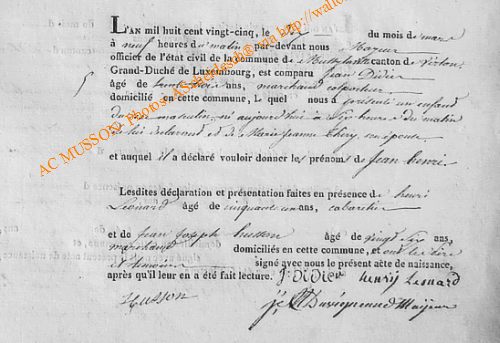 L'AN mil huit cent vingt-cinq, le dix du mois de mars
à neuf heures du matin par-devant nous Mayeur
officier de l'état civil de la commune de canton de Virton,
Grand-Duché de Luxembourg, est comparu Jean Didier
âgé de trente trois ans, marchand colporteur
domicilié en cette commune, le quel nous a présenté un enfant
du sexe masculin, né aujourd'hui à heures du matin
de lui déclarant et de Marie Jeanne Thiry son épouse
et auquel il a déclaré vouloir donner les prénoms de Jean henri
Lesdites déclaration et présentation faites en présence de henri
Léonard âgé de cinquante un ans, cabaretier
et de Jean Joseph husson âgé de vingt six ans,
marchand domiciliés en cette commune, et ont les père
et témoins signé avec nous le présent acte de naissance,
après qu'il leur en a été fait lecture. J. Didier henry Leonard
Husson Mayeur
AC MUSSON, Photos: AScheglesab@yna http://wallo